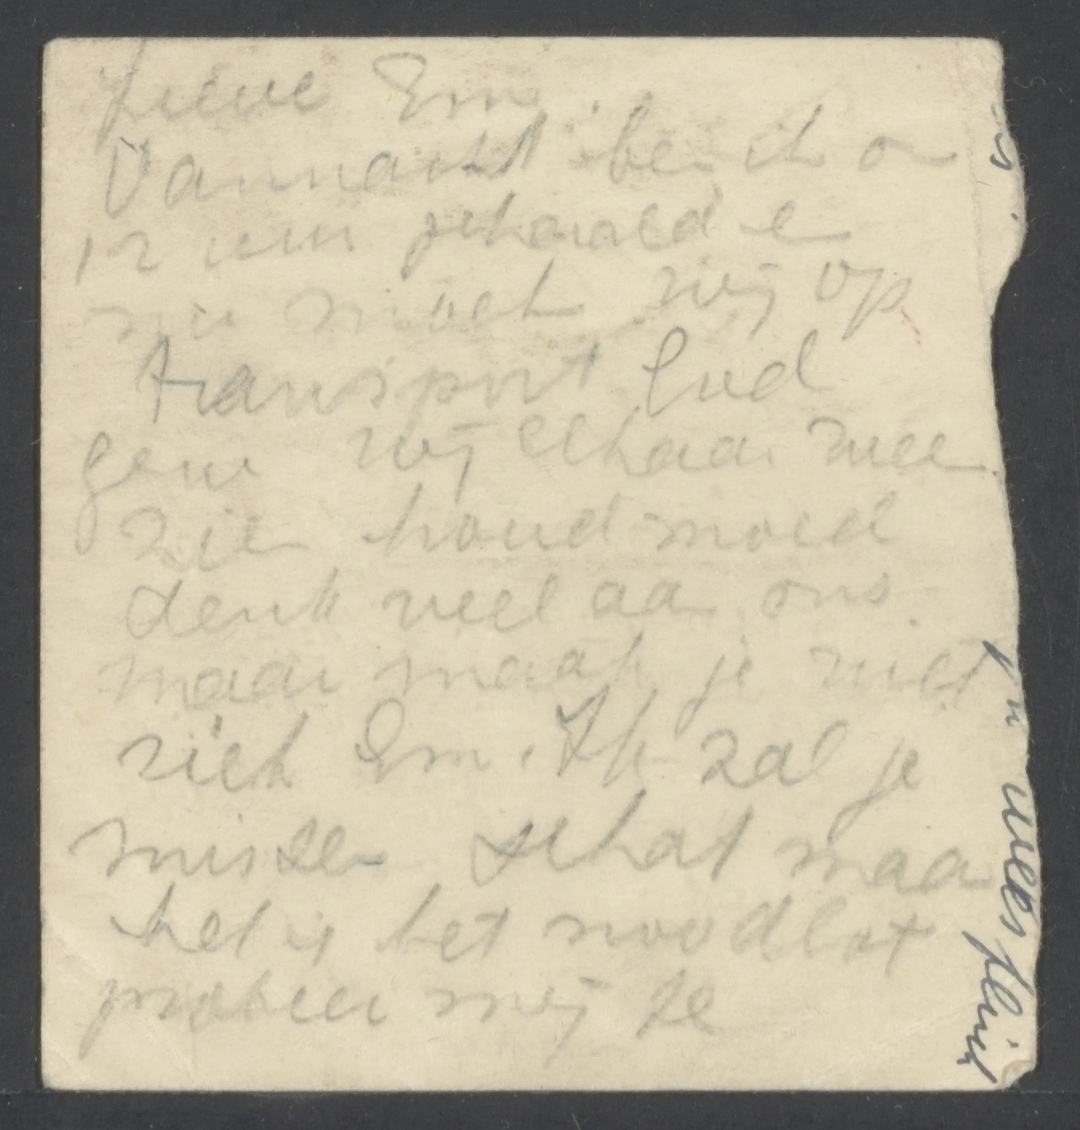 Lieve Em
Vannacht ben ik om
12 uur gehaald en
nu moet wij op
transport God
geve wij elkaar weer
zien houd moed
denk veel aan ons
maar maak je niet
ziek Em. Ik zal je
missen schat maar
het is het noodlot
probeer mij te
en wees flink